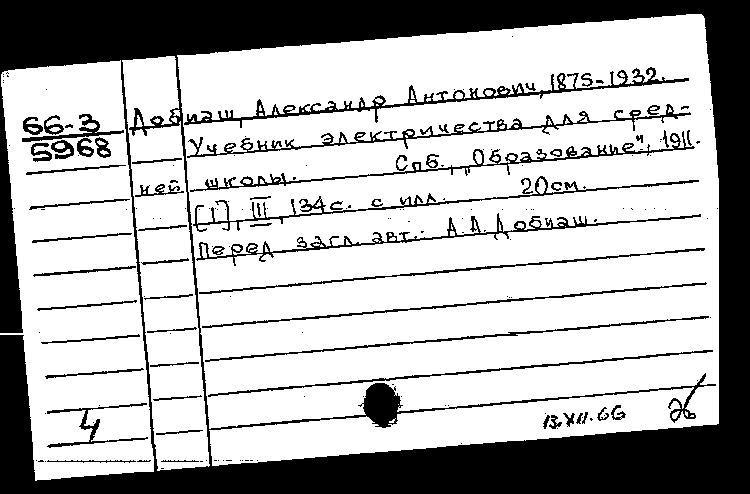 Добиаш, Александр Антонович, 1875-1932.
66-3
5968
Учебник электричества для сред-
ней школы. Спб., "Образование", 1911.
[1], III, 134с. с илл. 20см.
Перед загл. авт.: А.А. Добиаш.
4
13.XII.66